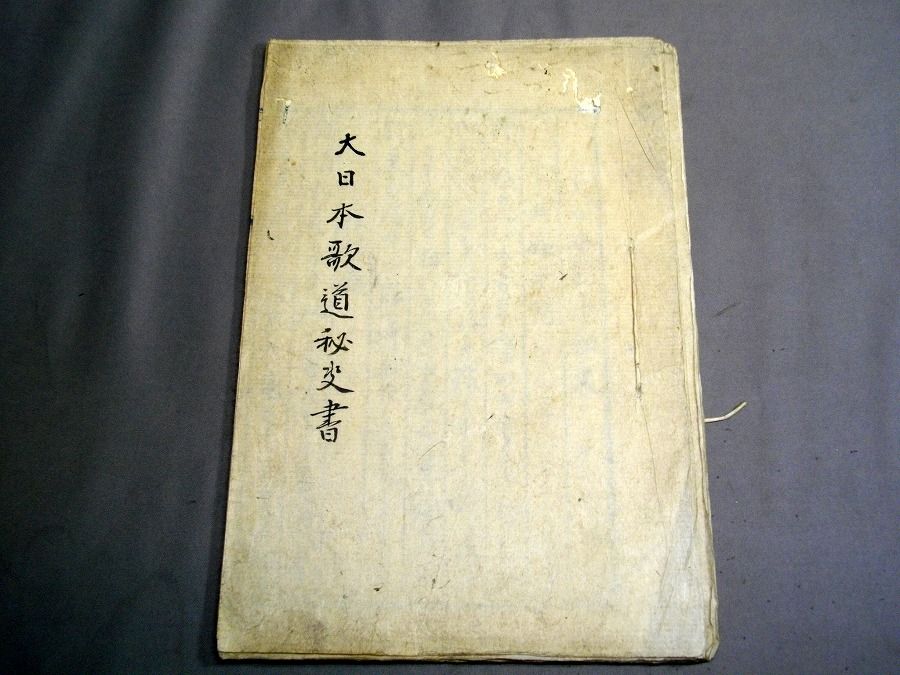 大日本歌道秘史書